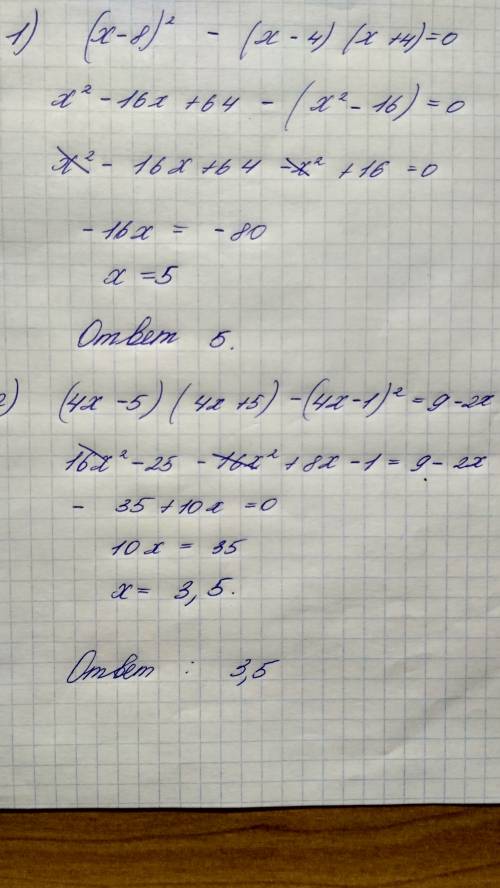 1) (x-8)² - (x-4)(x+4)=0
x²-16x+64 - (x²-16)=0
x²-16x+64-x²+16=0
-16x = -80
x=5
Ответ 5.
2) (4x-5)(4x+5)-(4x-1)²=9-2x
16x²-25-16x²+8x-1=9-2x
- 35+10x=0
10x = 35
x= 3,5.
Ответ : 3,5